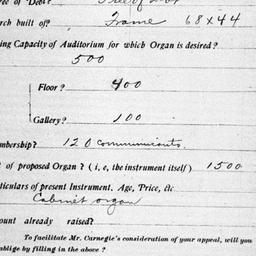 of Debt? Free of Debt
rch built of? Frame 68 x 44
ing Capacity of Auditorium for which Organ is desired?
500
Floor? 400
Gallery? 100
mbership? 120 Communicants.
of proposed Organ? (i, e, the instrument itself) 1500
ticulars of present Instrument. Age, Price, &c
Cabinet organ
ount already raised?
To facilitate Mr. Carnegie's consideration of your appeal, will you
oblige by filling in the above?